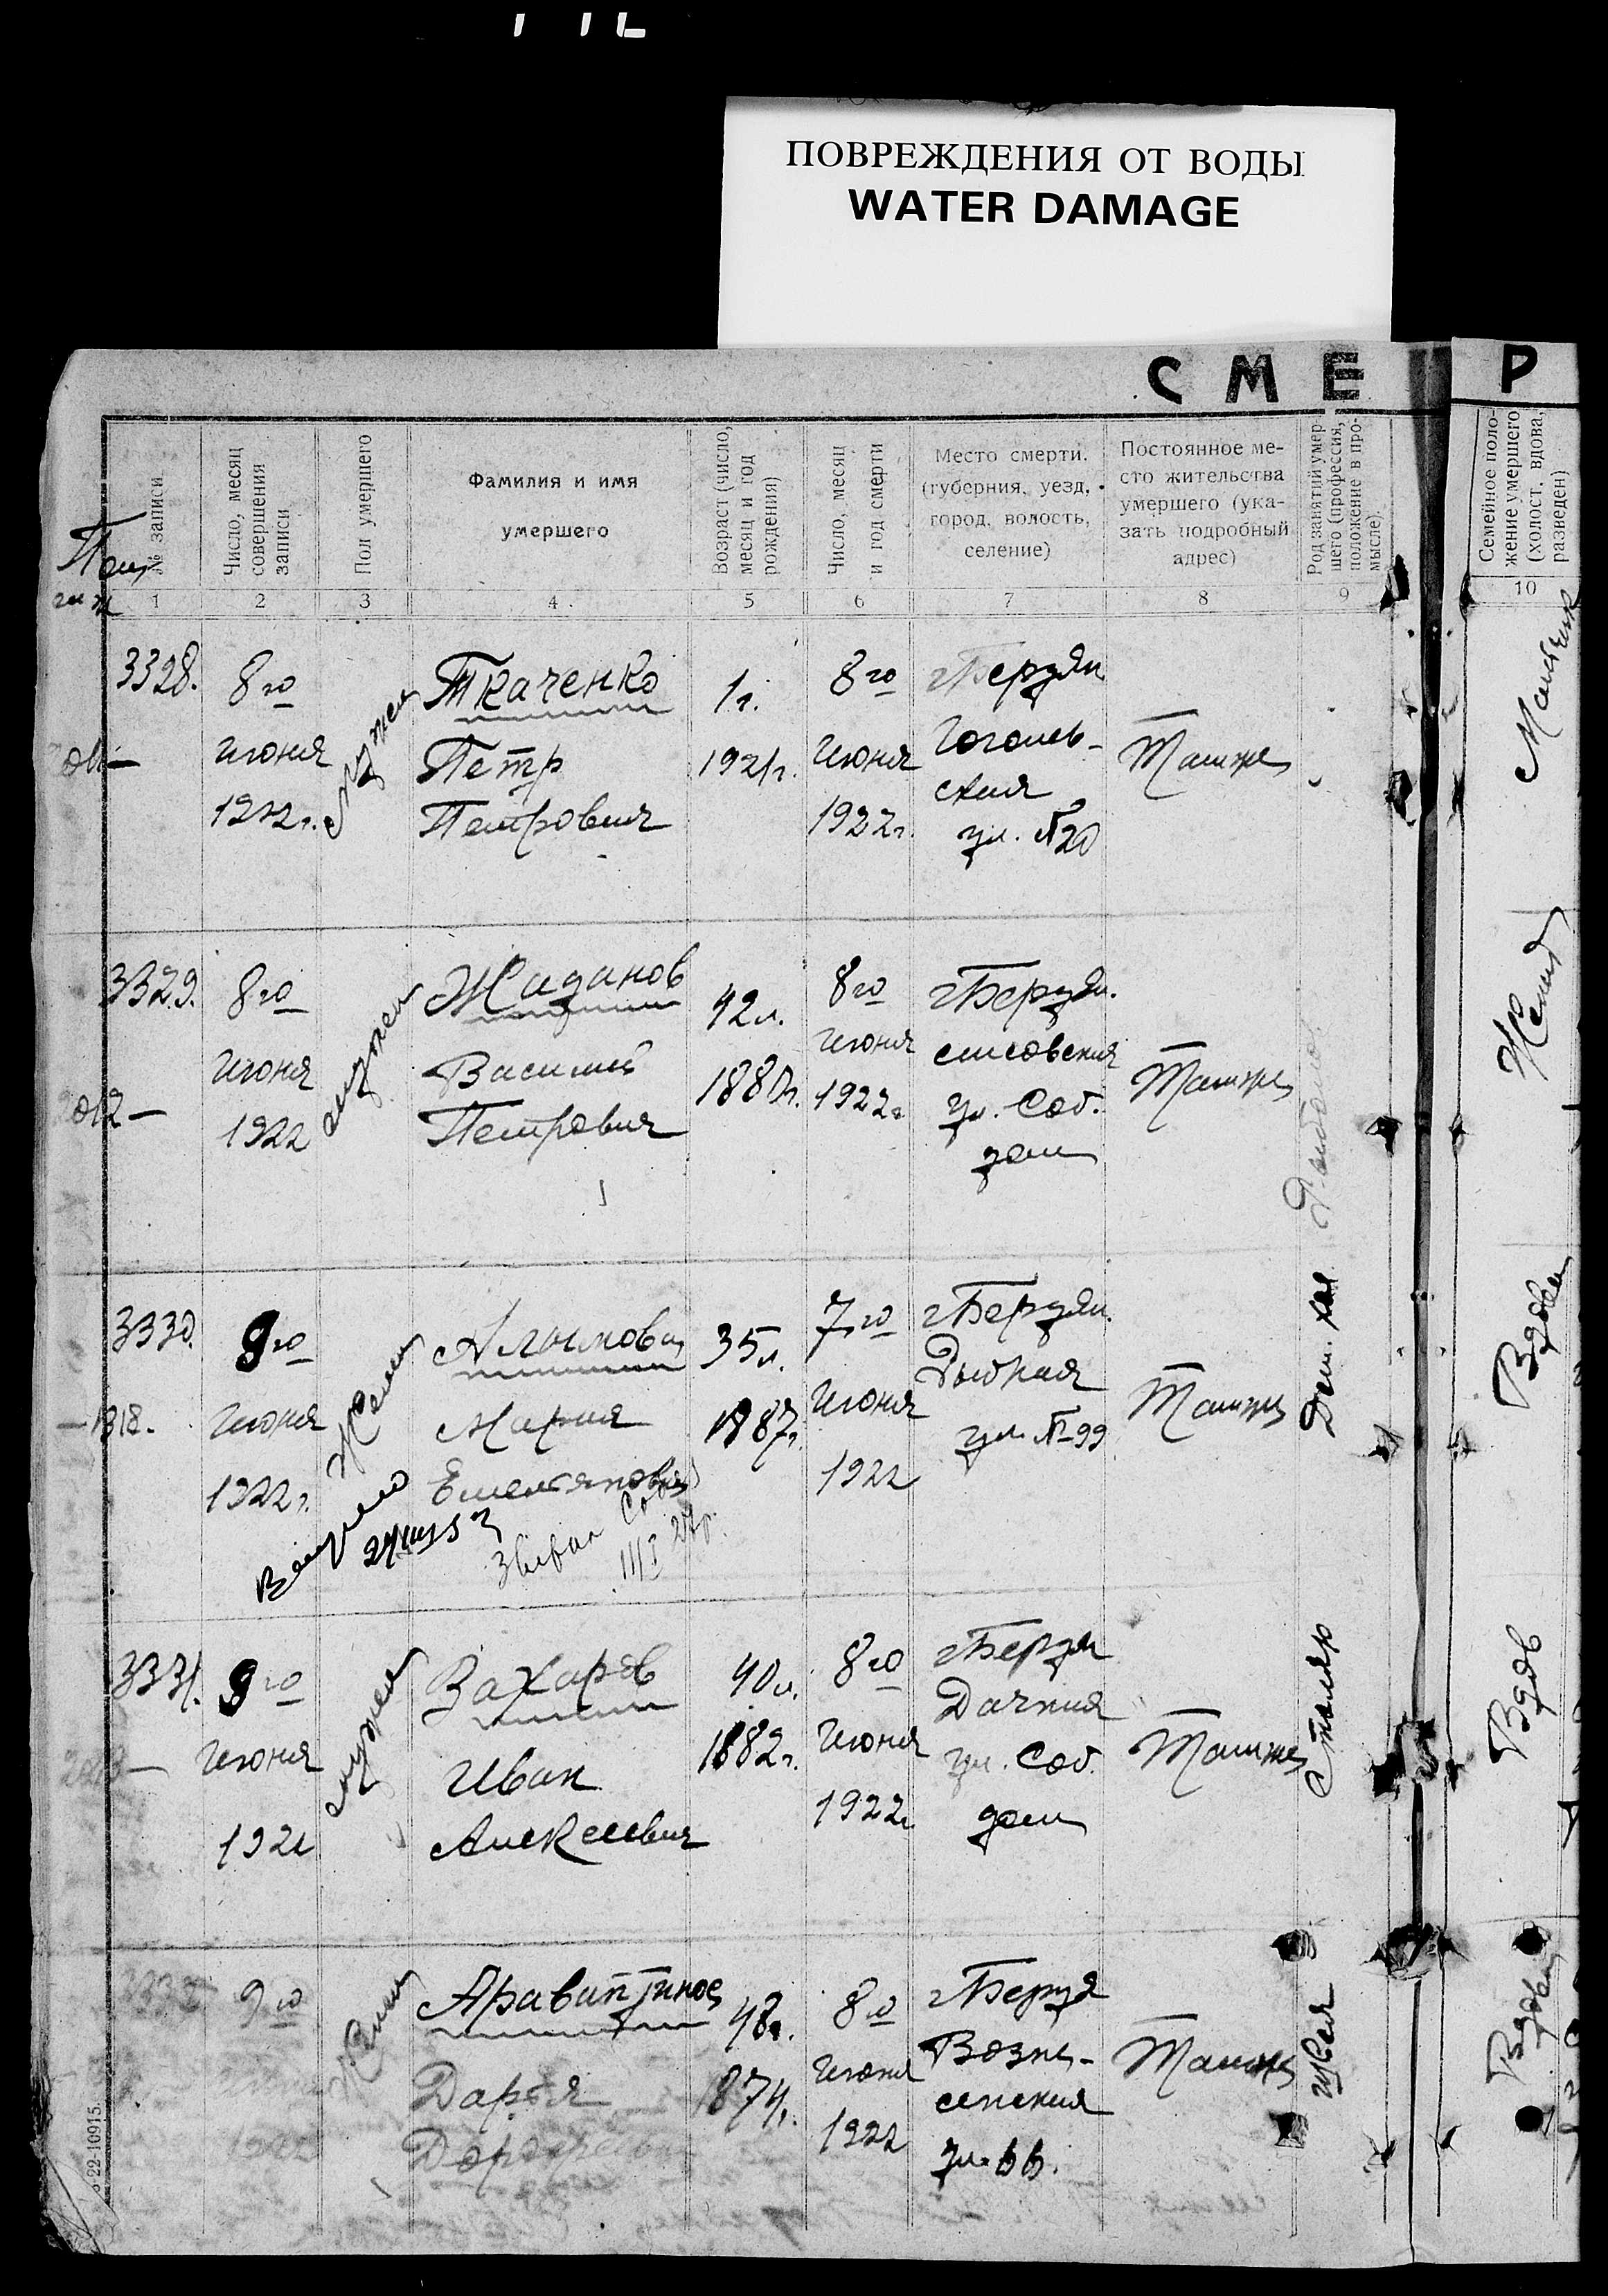 ПОВРЕЖДЕНИЯ ОТ ВОДЫ
WATER DAMAGE
С М Е Р
№ записи
Число, месяц совершения записи
Пол умершего
Фамилия и имя
умершего
Возраст (число, месяц и год рождения)
Число, месяц и год смерти
Место смерти.
(губерния, уезд,
город, волость,
селение)
Постоянное ме-
сто жительства
умершего (ука-
зать подробный
адрес)
Род занятий умер-
шего (профессия,
положение в про-
мысле).
Семейное поло-
жение умершего
(холост, вдова,
разведен)
1 2 3 4 5 6 7 8 9 10
3328.
8го
Июня
1922г.
Мужск
Ткаченко
Петр
Петрович
1г.
1921г.
8го
Июня
1922г.
г Бердян
Гоголев-
ская
ул. №20
Там же
Мальчик
3329.
8го
Июня
1922
мужск
Жаданов
Василий
Петрович
42л.
1880г.
8го
Июня
1922г
г Бердян.
ул. Соб.
дом
Там же
Женат
3330.
9го
Июня
1922г.
Женск
Алымова
Мария
Емельяновна
35л.
1887г.
7го
Июня
1922
г Бердян.
Рыбная
ул. №99
Там же
Дом. хоз.
Вдова
3331.
9го
Июня
1922
мужск
Захаров
Иван
Алексеевич
40л.
1882г.
8го
Июня
1922г
г Бердя
Дачная
ул. Соб.
дом
Там же
Столяр
Вдов
3332
9го
1922
Женск
Дарья
48л.
1874г.
8го
Июня
1922
г Бердя
Возне-
сенская
ул. 66.
Там же
швея
Вдова
22-10915.